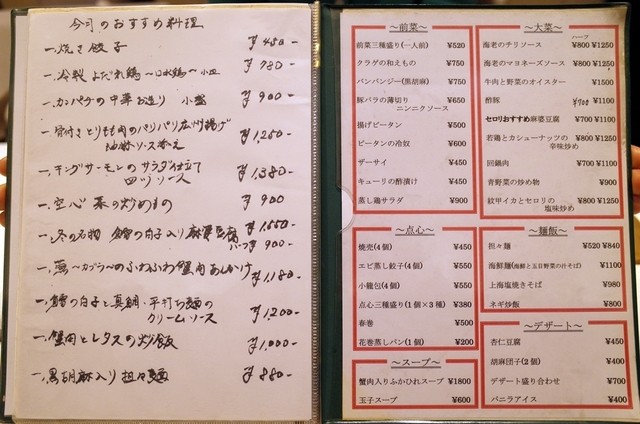 今月のおすすめ料理
一、焼き餃子 ¥450-
一、冷製よだれ鶏〜口水鶏〜小皿 ¥780-
一、カンパチの中華お造り 小盛 ¥900-
一、骨付きとりもも肉のパリパリ広州揚げ
油淋ソース添え ¥1,250-
一、キングサーモンのサラダ仕立て
四川ソース ¥1,380-
一、空心菜の炒めもの ¥900
一、冬の名物 鱈の白子入り麻婆豆腐 ¥1,550-
ハーフ ¥900-
一、蕪〜カブラ〜のふわふわ蟹肉あんかけ ¥1,180-
一、鱈の白子と真鯛・平打ち麺の
クリームソース ¥1,200-
一、蟹肉とレタスの炒飯 ¥1,000-
一、黒胡麻入り担々麺 ¥880-
〜前菜〜
前菜三種盛り(一人前) ¥520
クラゲの和えもの ¥750
バンバンジー(黒胡麻) ¥750
豚バラの薄切り ¥650
ニンニクソース
揚げピータン ¥500
ピータンの冷奴 ¥600
ザーサイ ¥450
キューリの酢漬け ¥450
蒸し鶏サラダ ¥900
〜点心〜
焼売(4個) ¥450
エビ蒸し餃子(4個) ¥550
小籠包(4個) ¥550
点心三種盛り(1個×3種) ¥380
春巻 ¥500
花巻蒸しパン(1個) ¥200
〜スープ〜
蟹肉入りふかひれスープ ¥1800
玉子スープ ¥600
〜大菜〜
ハーフ
海老のチリソース ¥800 ¥1250
海老のマヨネーズソース ¥800 ¥1250
牛肉と野菜のオイスター ¥1500
酢豚 ¥700 ¥1100
セロリおすすめ麻婆豆腐 ¥700 ¥1100
若鶏とカシューナッツの ¥800 ¥1250
辛味炒め
回鍋肉 ¥700 ¥1100
青野菜の炒め物 ¥900
紋甲イカとセロリの ¥800 ¥1250
塩味炒め
〜麺飯〜
担々麺 ¥520 ¥840
海鮮麺(海鮮と五目野菜の汁そば) ¥1100
上海塩焼きそば ¥980
ネギ炒飯 ¥800
〜デザート〜
杏仁豆腐 ¥450
胡麻団子(2個) ¥400
デザート盛り合わせ ¥700
バニラアイス ¥400